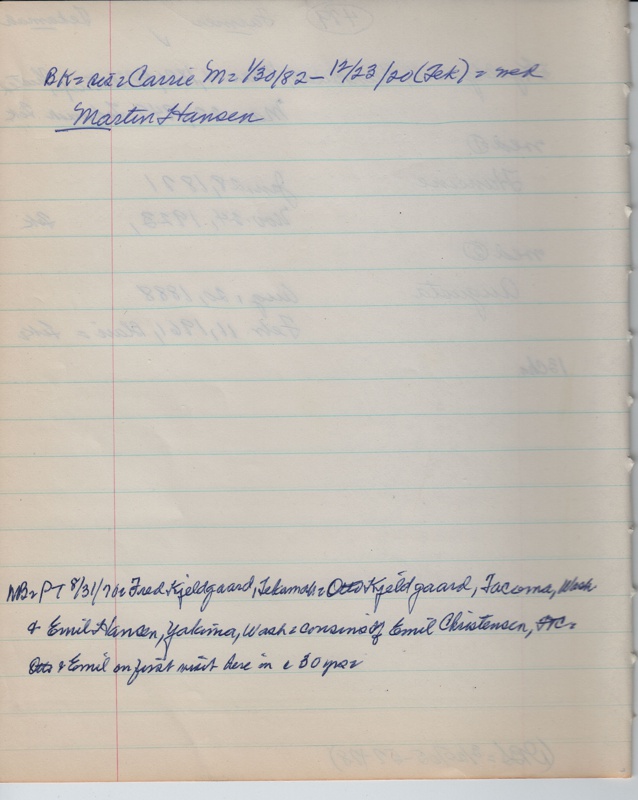 BK = Carrie M = 1/30/82 – 12/23/20 (Tek) =
Martin Hansen
NB = PT 8/31/76 = Fred Kjeldgaard, Tekamah = Otto Kjeldgaard, Tacoma, Wash
& Emil Hansen, Yakima, Wash = cousins of Emil Christensen,
Otto & Emil on first visit here in c 50 yrs =